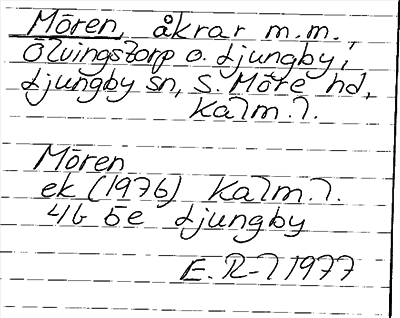 Mören, åkrar m.m.
Ölvingstorp o. Ljungby i
Ljungby sn, S. Möre hd,
Kalm.l.
Mören
ek (1976) Kalm.l.
4G 5e Ljungby
E. R-l 1977